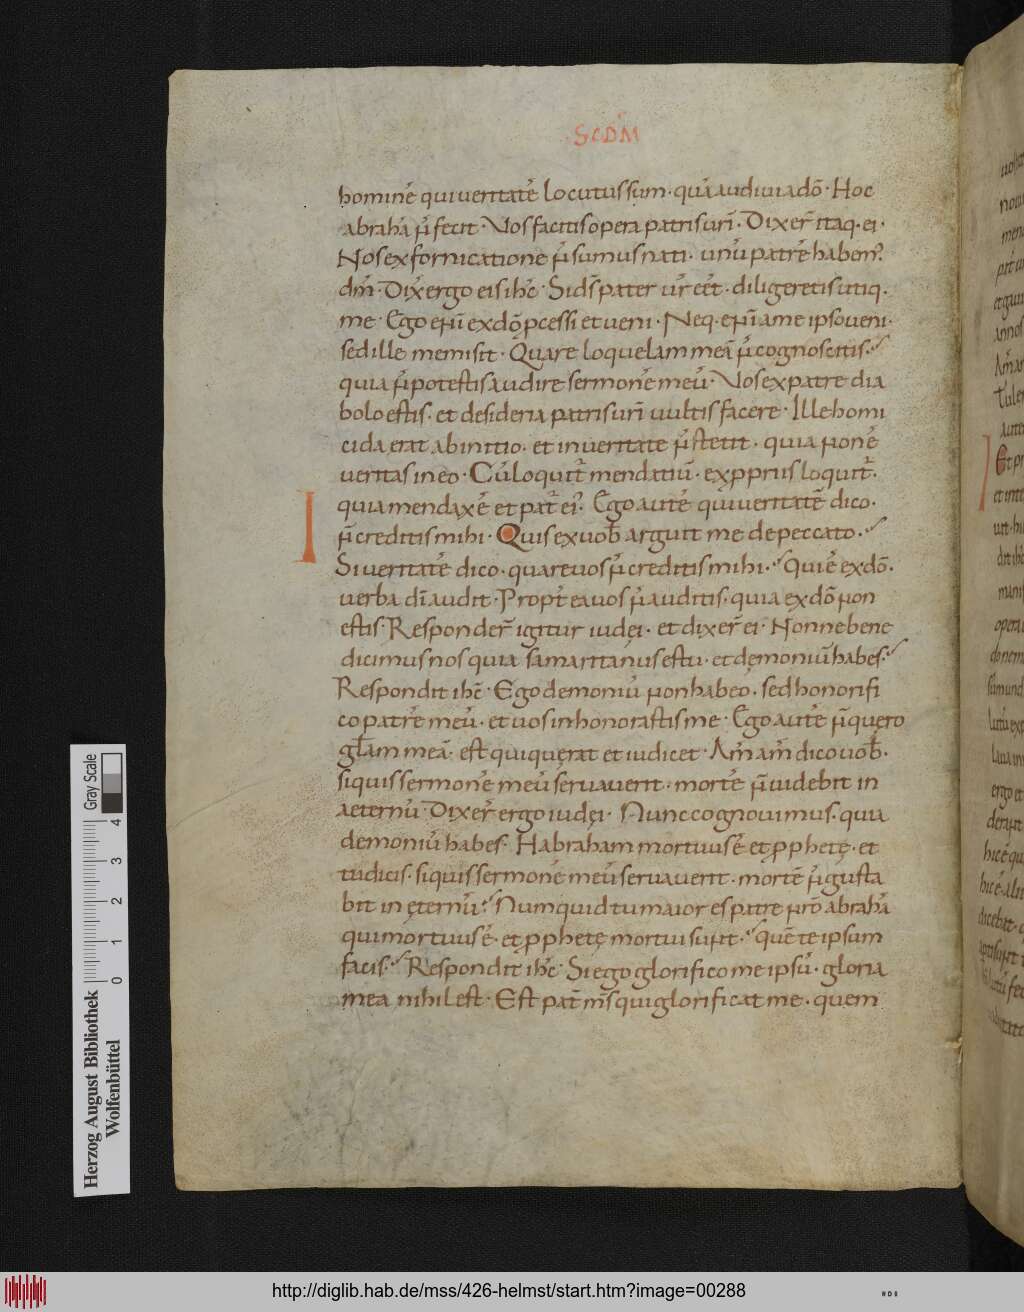 SCDM
hominē qui ueritatē locutus sum · quā audiui a dō · Hoc
abrahā n̄ fecit · Vos facitis opera patris urī · Dixer̄ itaq · ei ·
Nos ex fornicatione n̄ sumus nati · unū patrē habem?
dm̄ · Dix̄ ergo eis ihc̄ · Si ds̄ pater ur̄ eēt · diligeretis utiq ·
me · Ego enī ex dō pcessi et ueni · Neq · enī a me ipso ueni ·
sed ille me misit · Quare loquelam meā n̄ cognoscitis ·
quia n̄ potestis audire sermonē meū · Vos ex patre dia
bolo estis · et desideria patris urī uultis facere · Ille homi
cida erat ab initio · et in ueritate n̄ stetit · quia non ē
ueritas in eo · Cū loquit̄ mendatiū · ex ppriis loquit̄ ·
quia mendax ē et pat̄ ei? · Ego autē qui ueritatē dico ·
n̄ creditis mihi · Quis ex uob̄ arguit me de peccato ·
Si ueritatē dico · quare uos n̄ creditis mihi · Qui ē ex dō ·
uerba dī audit · Propt̄ ea uos n̄ auditis · quia ex dō non
estis · Responder̄ igitur iudęi · et dixer̄ ei · Nonne bene
dicimus nos quia samaritanus es tu · et dęmoniū habes ·
Respondit ihc̄ · Ego demoniū non habeo · sed honorifi
co patrē meū · et uos inhonorastis me · Ego autē n̄ quero
gl̄am meā · est qui quęrat et iudicet · Am̄ am̄ dico uob̄ ·
si quis sermonē meū seruauerit · mortē n̄ uidebit in
aeternū · Dixer̄ ergo iudęi · Nunc cognouimus · quia
demoniū habes · Habraham mortuus ē et pphetę · et
tu dicis · si quis sermonē meū seruauerit · mortē n̄ gusta
bit in ęternū · Numquid tu maior es patre nr̄o abrahā
qui mortuus ē · et pphetę mortui sunt · Quē te ipsum
facis · Respondit ihc̄ · Si ego glorifico me ipsū · gloria
mea nihil est · Est pat̄ ms̄ qui glorificat me · quem
Gray Scale
4 3 2 1 0
Herzog August Bibliothek
Wolfenbüttel
http://diglib.hab.de/mss/426-helmst/start.htm?image=00288